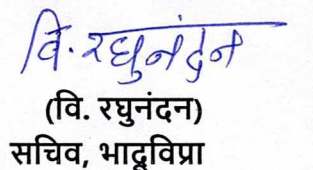 वि. रघुनंदन
(वि. रघुनंदन)
सचिव, भादूविप्रा